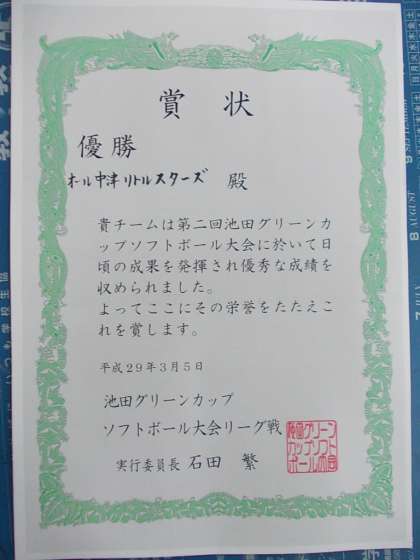 賞状
優勝
オール中津リトルスターズ 殿
貴チームは第二回池田グリーンカ
ップソフトボール大会に於いて日
頃の成果を発揮され優秀な成績を
収められました。
よってここにその栄誉をたたえこ
れを賞します。
平成29年3月5日
池田グリーンカップ
ソフトボール大会リーグ戦
実行委員長 石田 繁
池田グリーン
カップソフト
ボール大会
AUGUST